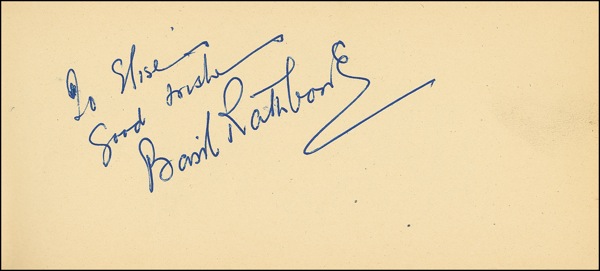 To Elise
Good wishes
Basil Rathbone